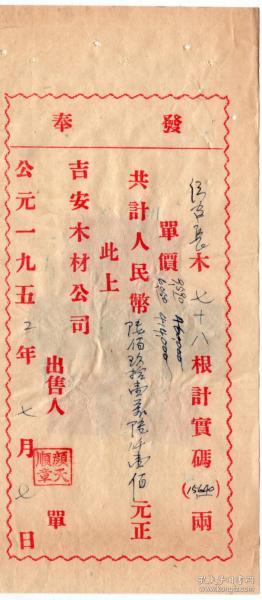 奉發
木七十八根計實碼(15640)兩
單價
共計人民幣陸佰玖拾壹萬陸仟壹佰元正
此上
吉安木材公司
出售人
顏天順章
單
公元一九五二年七月七日